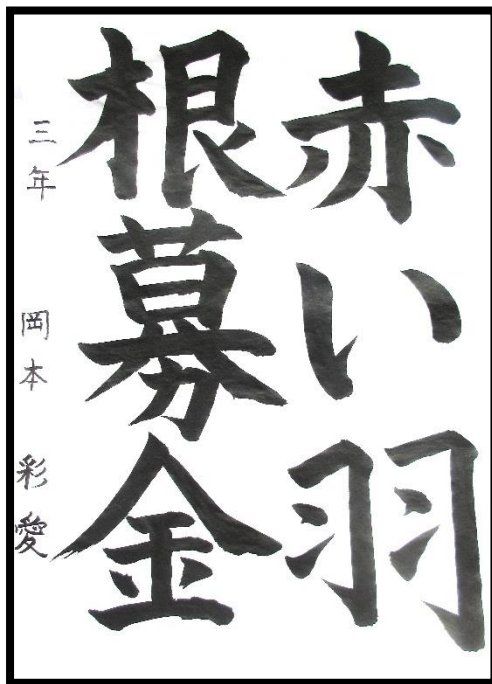 赤い羽
根募金
三年 岡本 彩愛